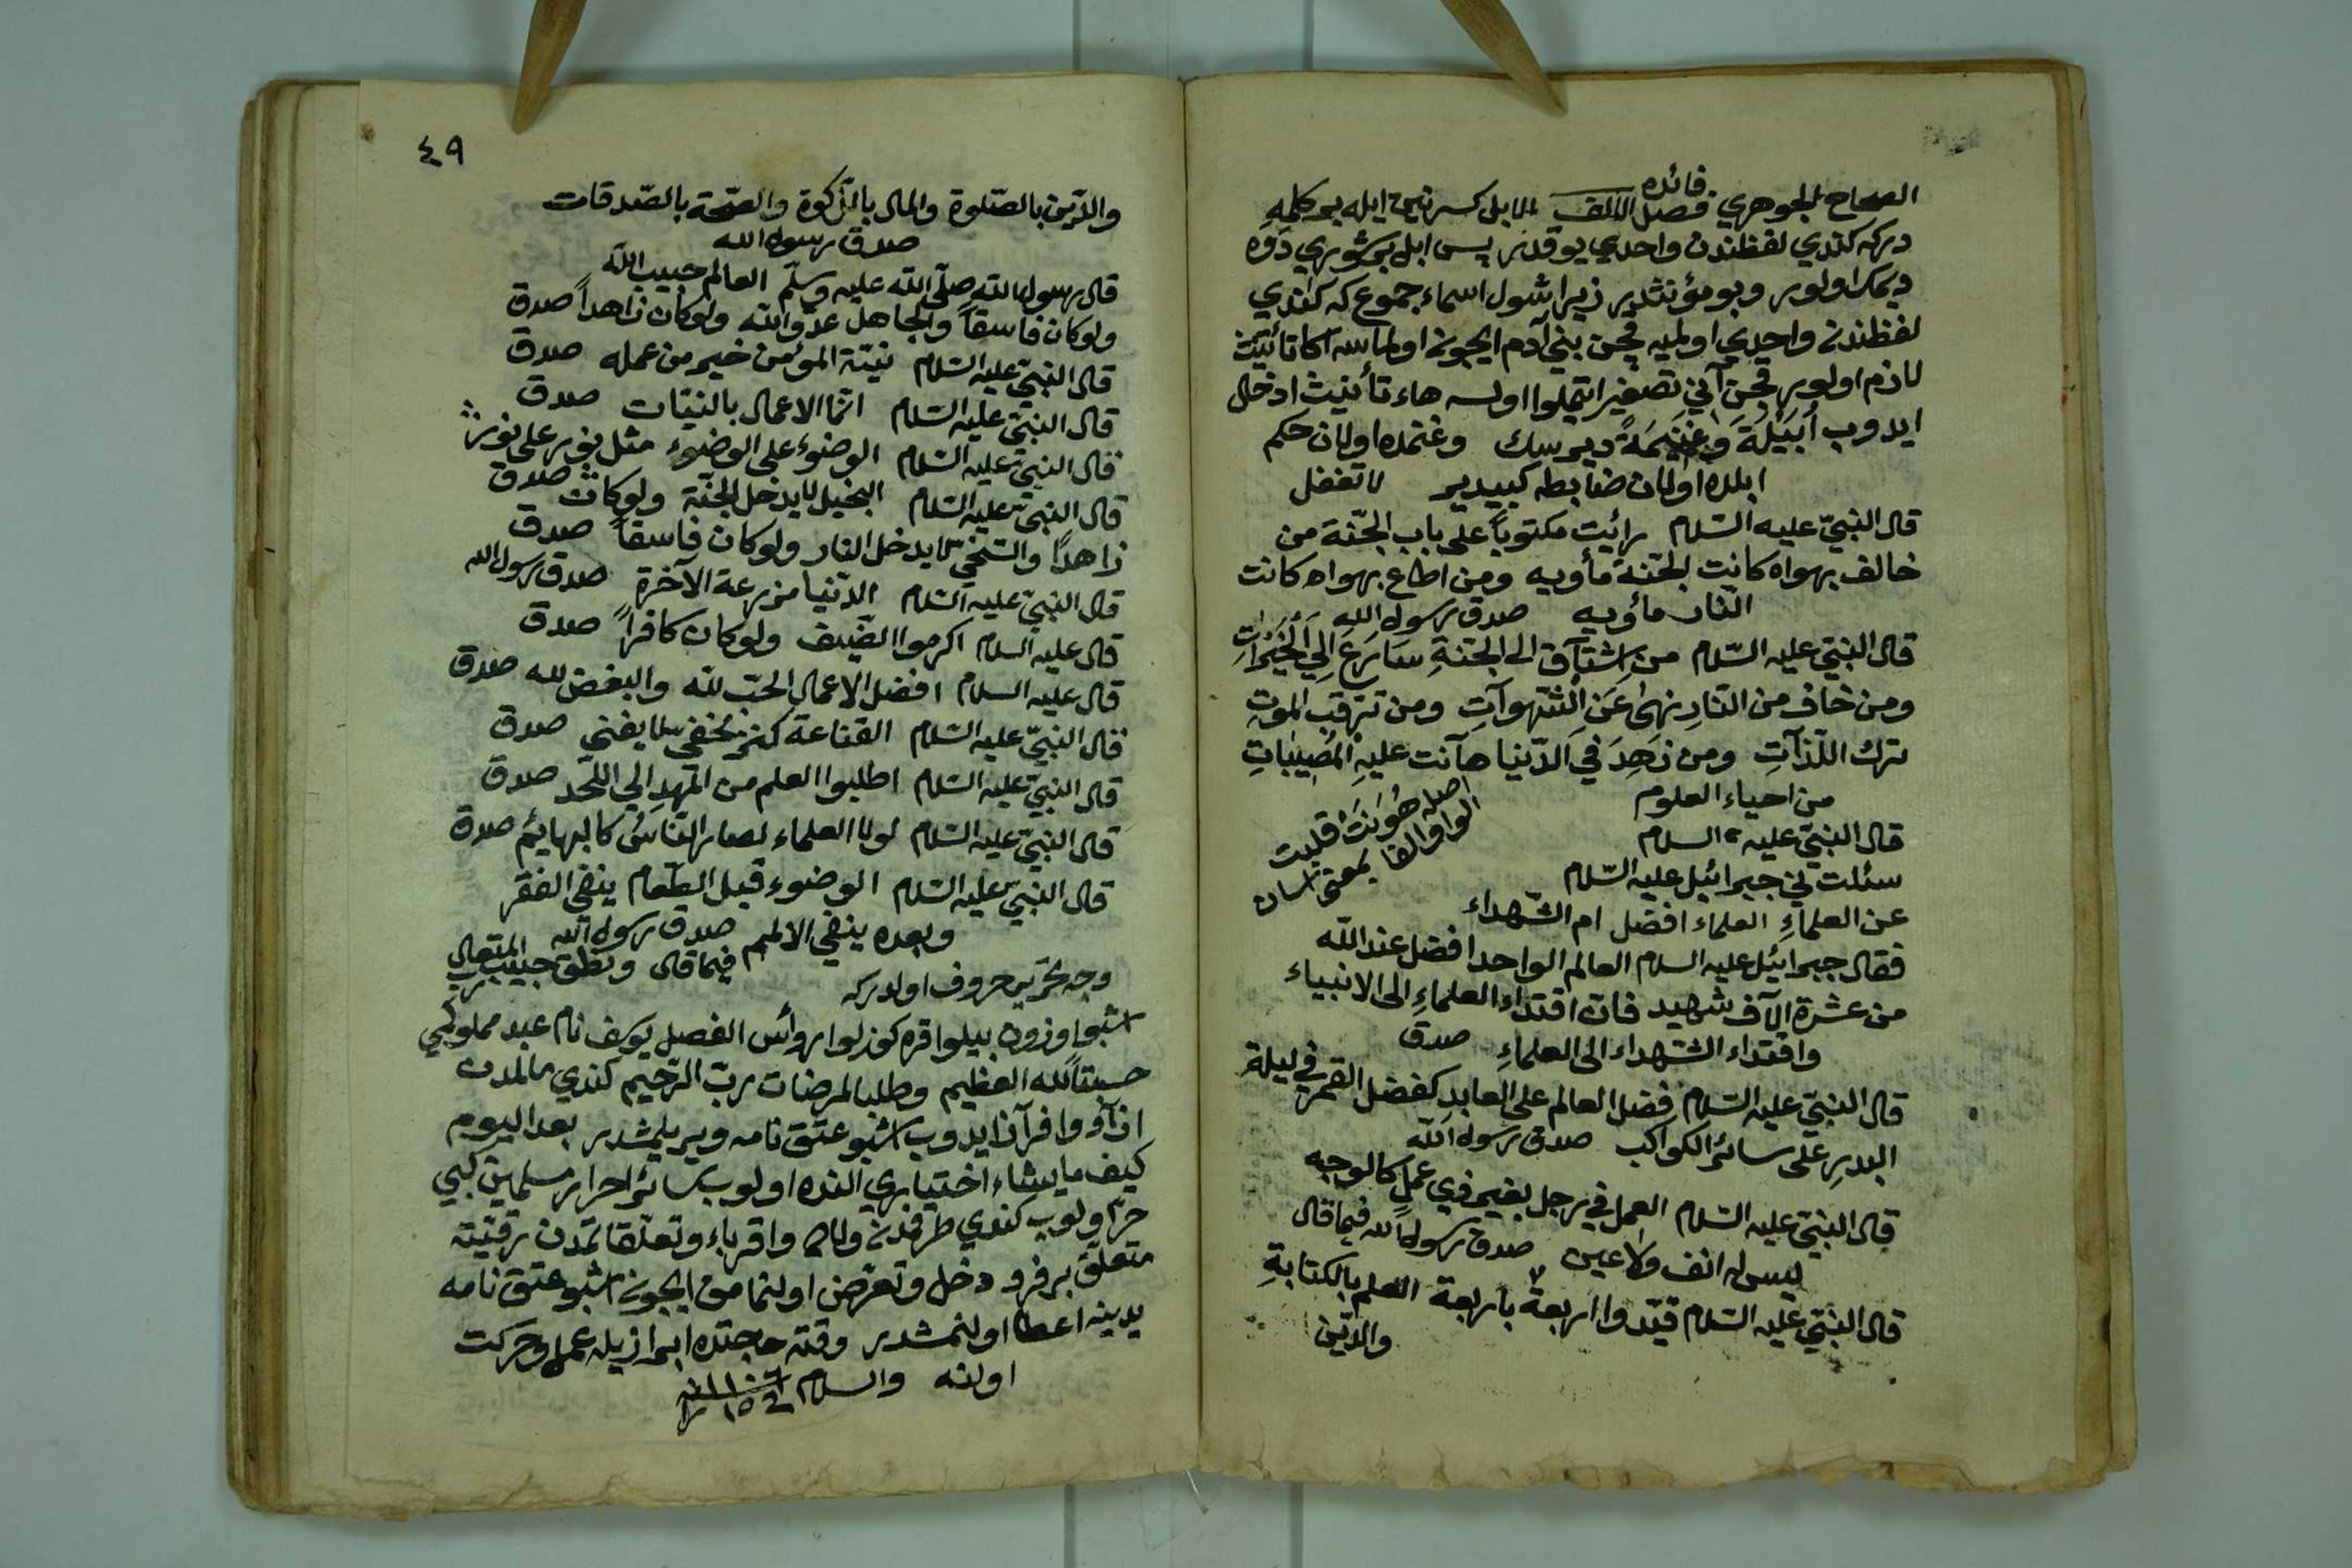 فائده
الصحاح للجوهري فصل الالف الابل كسرتين ايله بر كلمه
دركه كندي لفظندن واحدي يوقدر پس ابل
ديمك اولور وبو مؤنثدير زيرا شول اسماء جموع كه كندي
لفظندن واحدي اولميه قچن بني آدم ايچون اولماسه اكا تأنيث
لازم اولور قچن آني تصغير ايتملوا اولسه هاء تأنيث ادخال
ايدوب أُبَيْلَةً وَغُنَيْمَةً ديرسك وغنمده اولان حكم
ابلده اولان ضابطه كبيدير لا تغفل
قال النبيّ عليه السّلام رائيت مكتوباً على باب الجّنة من
خالف بهواه كانت الجنّة مأويه ومن اطاع بهواه كانت
النّار مأويه صدق رسول الله
قال النبيّ عليه السّلام من اِشتاق الى الجنّةِ سَارَعَ اِلي الْخَيْراتِ
ومن خاف من النّارِ نهىٰ عَنِ الْشّهوآتِ ومن ترقّب الموت
ترك اللّذآتِ ومن زَهِدَ فيِ الدّنيا هآنت عليهِ الْمُصِيباتِ
من احياء العلوم
اصله هَوُنَتْ قلبت
الواو الفا بمعنى اسان
قال النبيّ عليه السلام
سئلت ني جبرائيل عليه السّلام
عن العلماءِ العلماء افضل ام الشّهداء
فقال جبرائيل عليه السلام العالم الواحد افضل عند الله
من عشرة الآف شهيد فان اقتداء العلماءِ الى الانبياء
واقتداء الشّهداء الى العلماءِ صدق
قال النبيّ عليه السّلام فضل العالم على العابدِ كفضل القمر في ليلة
البدرِ على سائر الكواكب صدق رسول الله
قال النبيّ عليه السّلام العمل في رجل بغير ذي عملٍ كالوجه
ليس له انف ولا عين صدق رسول الله فيما قال
قال النبيّ عليه السّلام قيّدوا اربعة باربعة العلم بالكتابةِ
والدّين
٤٩
والدّين بالصّلوة والمال بالزّكوة والصّحة بالصّدقات
صدق رسول الله
قال رسول الله صلّى الله عليه وسلّم العالم حبيب الله
ولو كان فاسقاً والجاهل عدوّ الله ولو كان زاهداً صدق
قال النبيّ عليه السّلام نيّة المؤمن خير من عمله صدق
قال النبيّ عليه السّلام انّما الاعمال بالنيّات صدق
قال النبيّ عليه السّلام الوضوء على الوضوء مثل نور على نور
قال النبيّ عليه السّلام البخيل لا يدخل الجنّة ولو كان صدق
زاهدًا والسّخيّ لا يدخل النار ولو كان فاسقاً صدق
قال النبيّ عليه السّلام الدّنيا مزرعة الآخرة صدق رسول الله
قال عليه السلام اكرموا الضّيف ولو كان كافراً صدق
قال عليه السلام افضل الاعمال الحبّ لله والبغض لله صدق
قال النبيّ عليه السّلام القناعة كنز يخفى لا يفني صدق
قال النبيّ عليه السّلام اطلبوا العلم من المَهدِ الي اللّحد صدق
قال النبيّ عليه السّلام لولا العلماء لصار النّاسُ كالبهايم صدق
قال النبيّ عليه السّلام الوضوء قبل الطّعام ينفي الفقر
وبعده ينفي الالمم صدق رسول الله
فيما قال ونطق حبيب ربّ المتعالي
وجه تحرير حروف اولدركه
اشبو اوزون بيلوا قره كوزلوا روائس الفصل يوسف نام عبد مملوكمي
حسبتاً لله العظيم وطلبا لمرضات ربّ الرّحيم كندي مالمدن
ازآد وافرآز ايدوب اشبو عتق نامه ويريلمشدر بعد اليوم
كيف ما يشاء اختياري النده اولوب سائر احرار مسلمين كبي
حرّ اولوب كندي طرفمدن واقرباء وتعلّقاتمدن رقيّته
متعلّق برفرو دخل وتعرّض اولنمامق ايچون اشبو عتق نامه
يدينه اعطا اولنمشدر وقت حاجتده ابراز يله عمل وحركت
اولنه والسلام